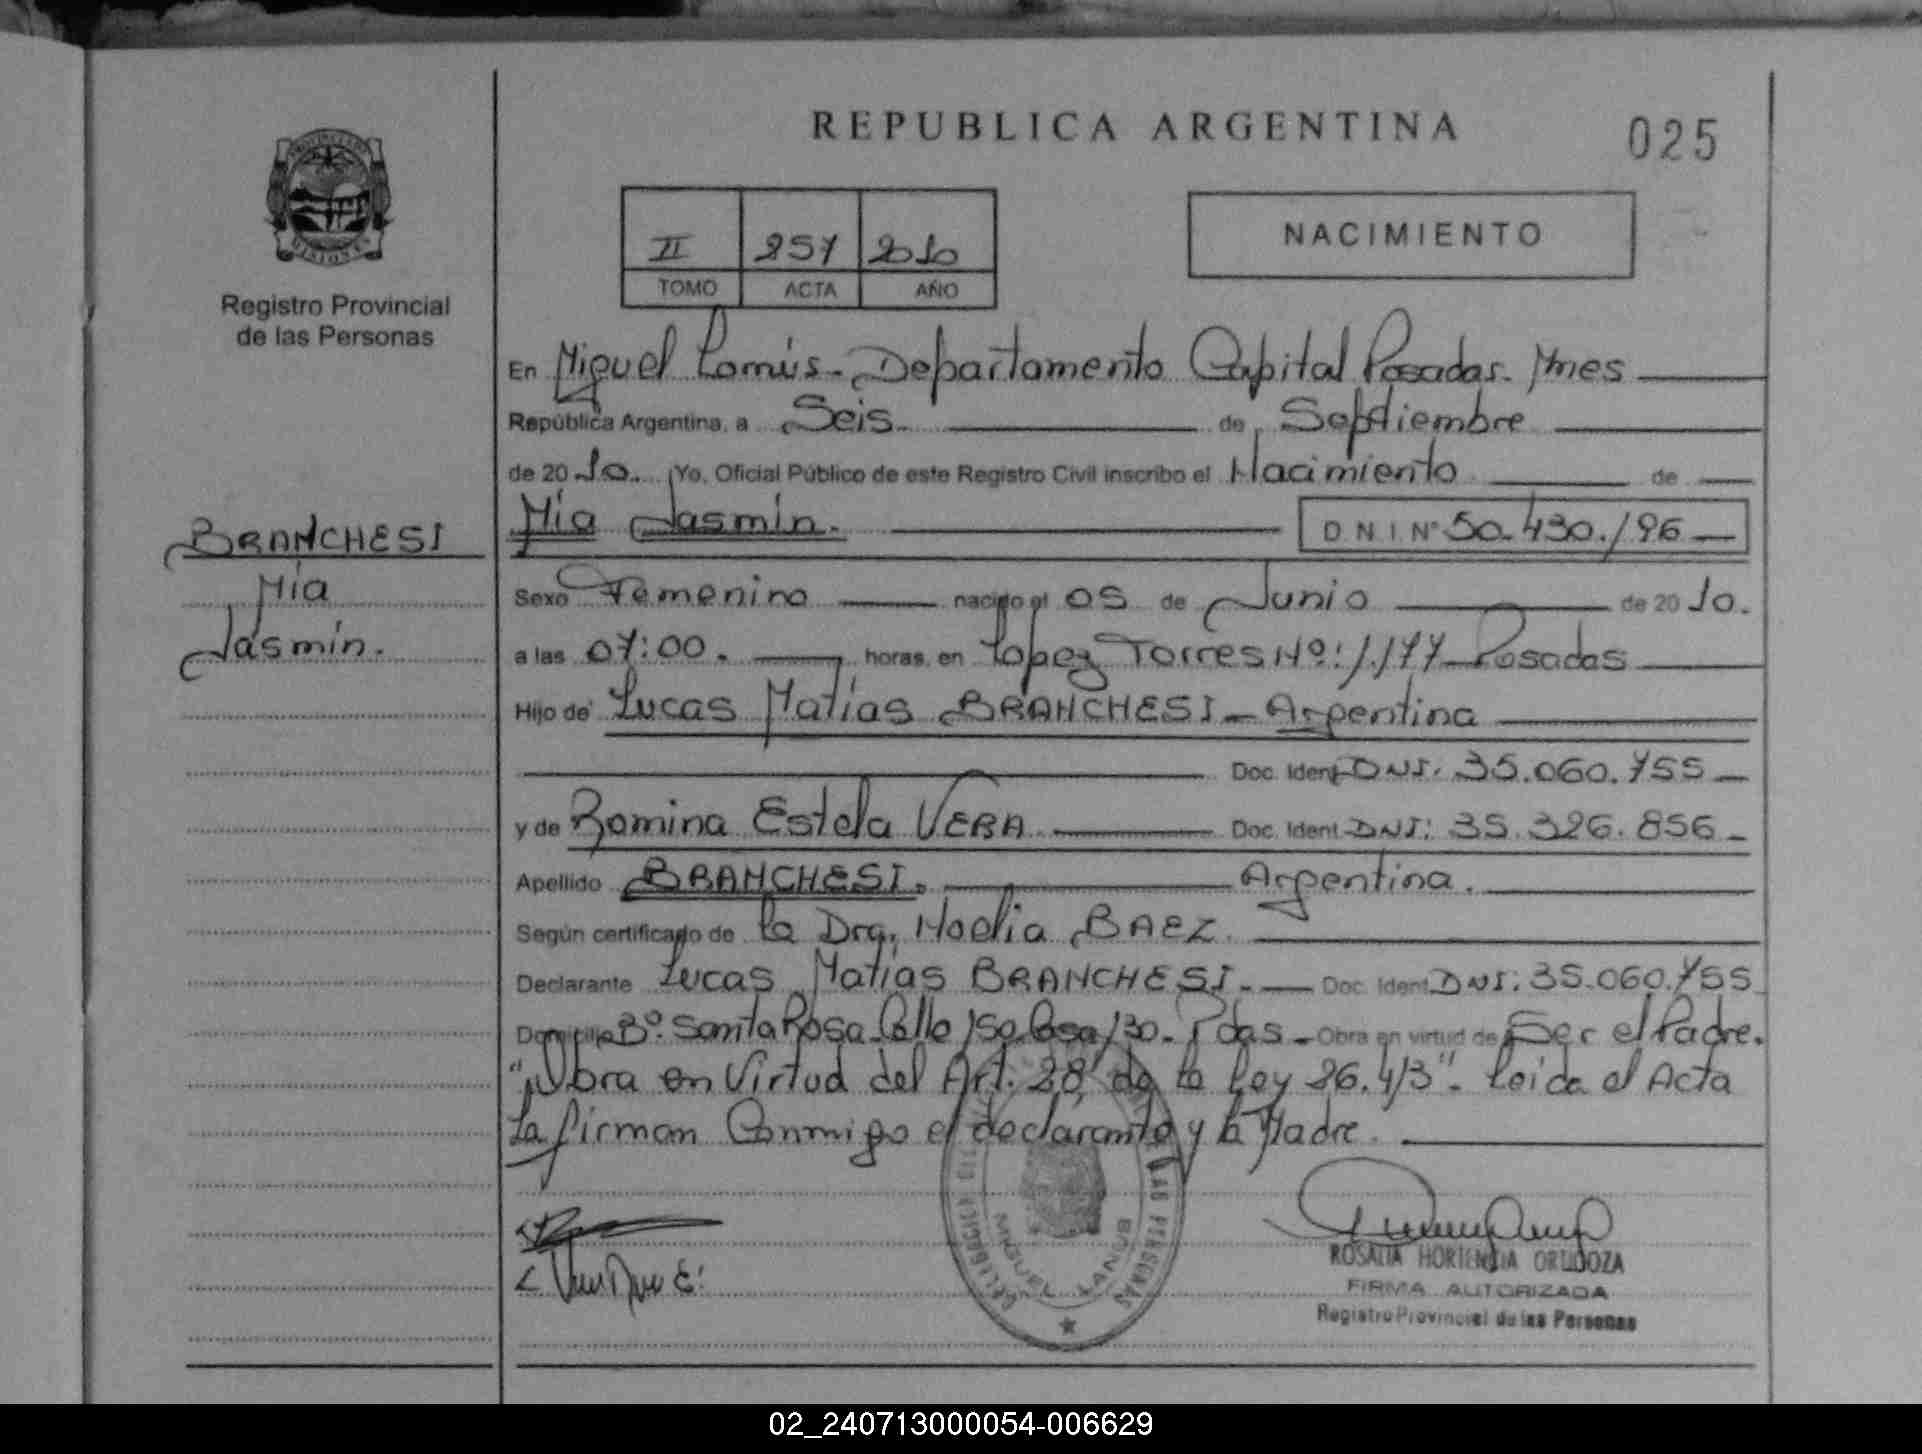 REPUBLICA ARGENTINA
025
II 257 2010
TOMO ACTA AÑO
NACIMIENTO
Registro Provincial
de las Personas
BRANCHESI
Mía
Jasmín.
En Miguel Lanús - Departamento Capital Posadas. Mnes
República Argentina, a Seis de Septiembre
de 2010. Yo, Oficial Público de este Registro Civil inscribo el Nacimiento de
Mía Jasmín. D.N.I. N° 50.430.196
Sexo Femenino nacido el 05 de Junio de 2010.
a las 07:00. horas, en López Torres Nº: 1.177 Posadas
Hijo de Lucas Matías BRANCHESI - Argentina
Doc. Ident DNI. 35.060.755
y de Romina Estela VERA Doc. Ident DNI: 35.326.856
Apellido BRANCHESI. Argentina.
Según certificado de la Dra. Noelia BAEZ.
Declarante Lucas Matías BRANCHESI. Doc. Ident DNI: 35.060.755
Domicilio Bº. Santa Rosa Calle 150. Casa 130. Pdas - Obra en virtud de Ser el Padre.
"Obra en Virtud del Art. 28 de la Ley 26.413". Leída el Acta
la firman Conmigo el declarante y la Madre.
DELEGACION MIGUEL LANUS
DE LAS PERSONAS
ROSALIA HORTENCIA ORUDOZA
FIRMA AUTORIZADA
Registro Provincial de las Personas
02_240713000054-006629